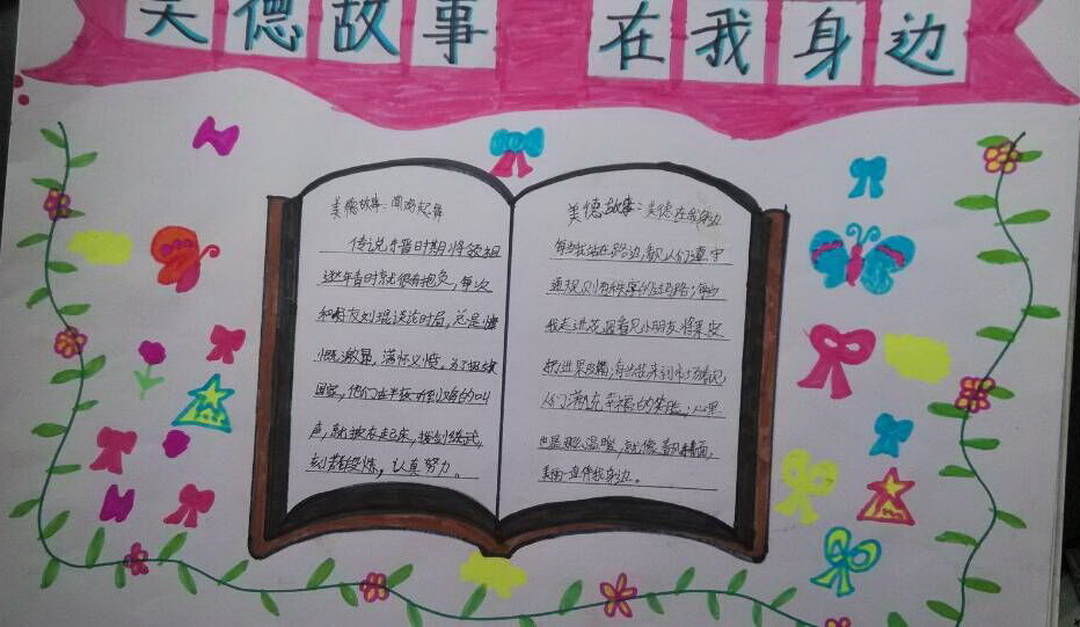 美德故事 在我身边
美德故事:闻鸡起舞
传说东晋时期将领祖
逖年青时就很有抱负,每次
和好友刘琨谈论时局,总是慷
慨激昂,满怀义愤,为了报效
国家,他们在半夜听到鸡的叫
声,就披衣起床,拔剑练武,
刻苦锻炼,认真努力。
美德故事:美德在我身边
每当我站在路边,都见人们遵守
通规则有秩序的过马路;每当
我走进花园看见小朋友将果皮
扔进果皮箱;每当我来到市场看见
人们满脸幸福的笑脸,心里
也是那么温暖,就像春风拂面,
美丽一直伴我身边。